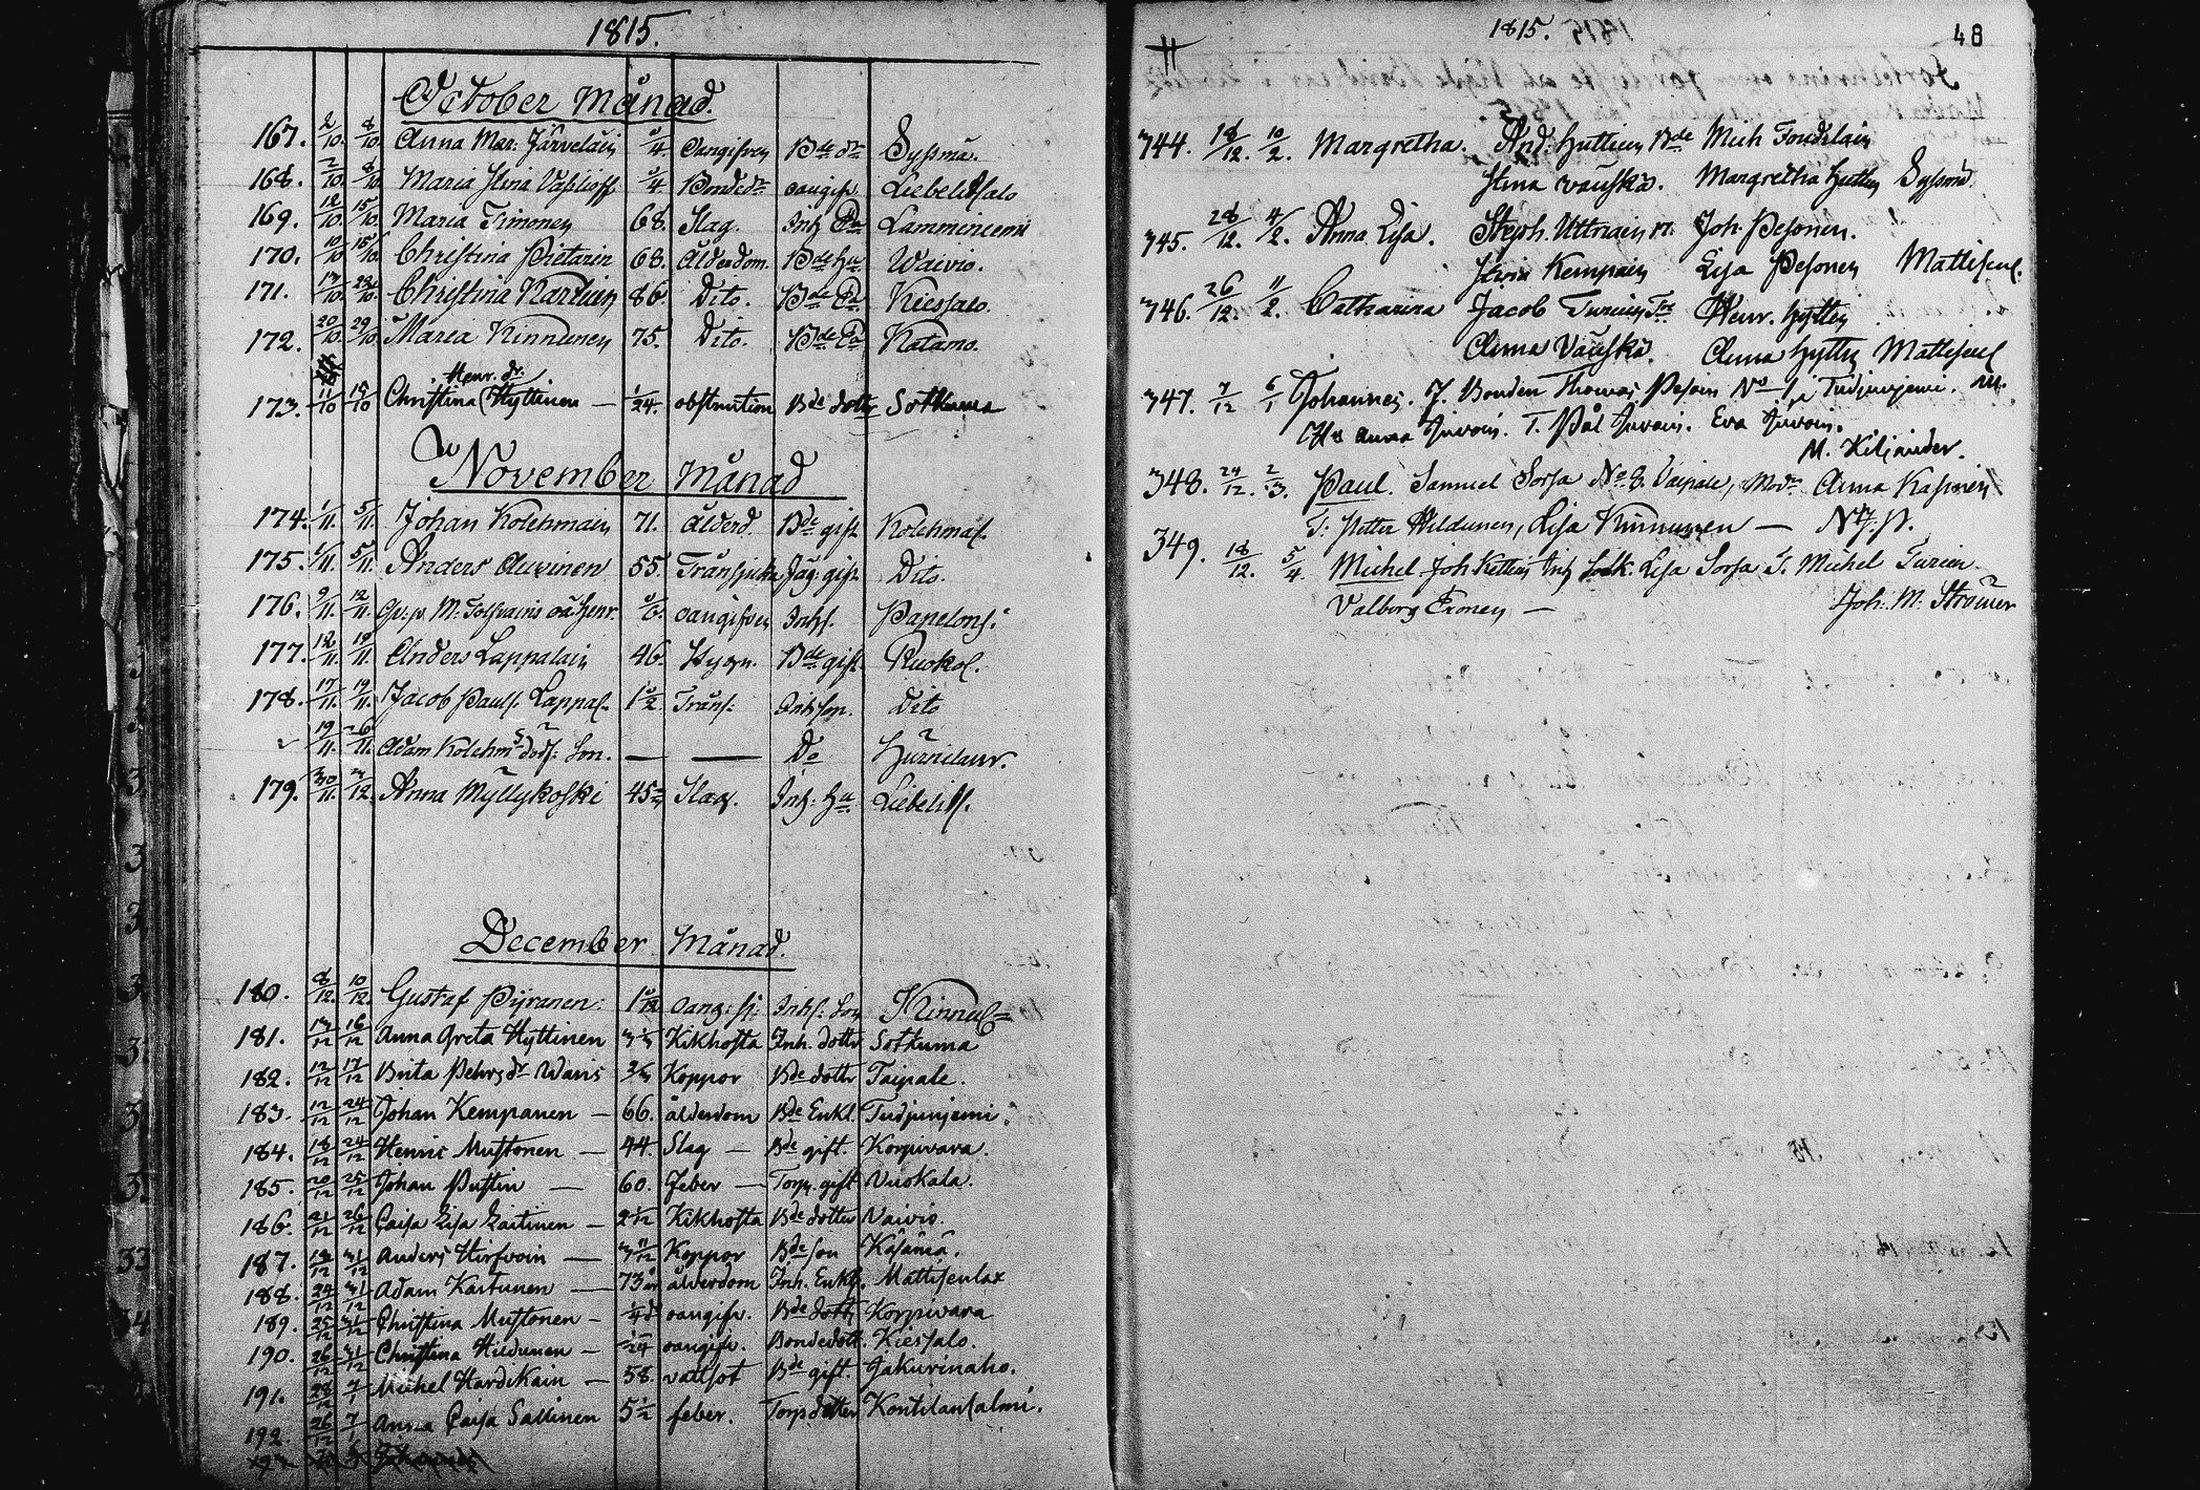 1815.
October Månad.
167. 2/10. 8/10. Anna Mar: Järveläin /4. Oangifven Bde dr Syssmä.
168. 2/10. 8/10. Maria Stina Vassiloff /4. Bondedr oangifv. Liebelitsalo
169. 12/10. 15/10. Maria Timonen 68. Slag. Inh Ea Lamminiemi
170. 10/10 15/10. Christina Pietarin 68. Ålderdom. Bde hu. Waivio.
171. 17/10. 22/10. Christina Kartuin 86. Dito. Bde Ea Kiessalo.
172. 20/10. 29/10. Maria Kinnunen 75. Dito. Bde Ea Katamo.
Henr. dr.
173. 11/10 15/10 Christina Hyttinen — 1/24. obstruction Bde dotter Sotkuma
November Månad
174. 1/11. 5/11. Johan Kolehmain 71. Ålderd. Bde gift Kolehmas.
175. 1/11. 5/11. Anders Auvinen 55. Trånsjuka gift Dito.
176. 9/11. 12/11. M: Tolfvains oä Henr. /6. oangifven Inhs. Papelons.
177. 12/11. 19/11. Anders Lappalain 46. Bde gift. Ruokol.
178. 17/11. 19/11. Jacob Pauls. Lappal. 1/2. Tråns: Inhson. Dito
19/11. 26/11. Adam Kolehm dödf: Son. — — Do
179. 30/11. 3/12. Anna Myllykoski 45 Slag. Inh: Hu Liebelits.
December Månad.
180. 8/12. 10/12. Gustaf Pyranen: 1 /12 oang: sj: Inhs: Son Kinnul=
181. 13/12 16/12 Anna Greta Hyttinen 3 Kikhosta Inh. dotter Sotkuma
182. 12/12 17/12 Brita Pehrsdr Waris Koppor Bde dotter Taipale.
183. 12/12 24/12 Johan Kempanen — 66. ålderdom Bde Enkl. Tudjunjemi.
184. 18/12 24/12 Henric Mustonen — 44. Slag — Bde gift. Korpivara.
185. 20/12 25/12 Johan Pustin — 60. feber — Torp. gift Vuokala.
186. 21/12 26/12 Caisa Lisa Laitinen — 2 /12 Kikhosta Bde dotter Vaivio.
187. 13/12 31/12 Anders Hirfvoin — 3 11/12 Koppor Bde son Käsämä.
188. 24/12 31/12 Adam Kartunen — 73 år ålderdom Inh. Enkl. Mattisenlax
189. 25/12 31/12 Christina Mustonen — oangifv. Bde dott Korpivara
190. 26/12 31/12 Christina Hildunen — 1/24 oangifv. Bondedott. Kiessalo.
191. 28/12 7/1 Michel Hardikain — 58. vattsot Bde gift. Jakurinaho.
192. 26/12 7/1 Anna Caisa Sallinen 5 1/2 feber. Torp dotter Kontilansalmi.
1815. 48
344. 18/12. 10/2. Margretha. And: Huttinen Bde Mich Toudslain
Stina Väuskä. Margretha Hutten Syssmä.
345. 28/12. 4/2. Anna Lisa. Steph. Uttriain Joh: Pesonen.
Stina Kempain Lisa Pesonen Mattisenl.
346. 26/12. 11/2. Catharina Jacob Turuin Henr. Hyttin
Anna Väuskä. Anna Hyttin Mattisenl
347. 7/12 6/1 Johannes. F. Bonden Thomas Pesoin No 1 i Tudjunjemi. M.
Hu Anna Juvoin. T. Pål Juvain. Eva Juvoin.
M. Kiljander.
348. 24/12. 2/3. Paul. Samuel Sorsa No. 8. Taipale, Modr Anna Kasinen
T: Petter Hildunen, Lisa Kinnunen —
349. 18/12. 5/4. Michel. Joh. Kettin Inh Solk. Lisa Sorsa T. Michel Turien
Valborg Eronen — Joh: M: Ströhmer